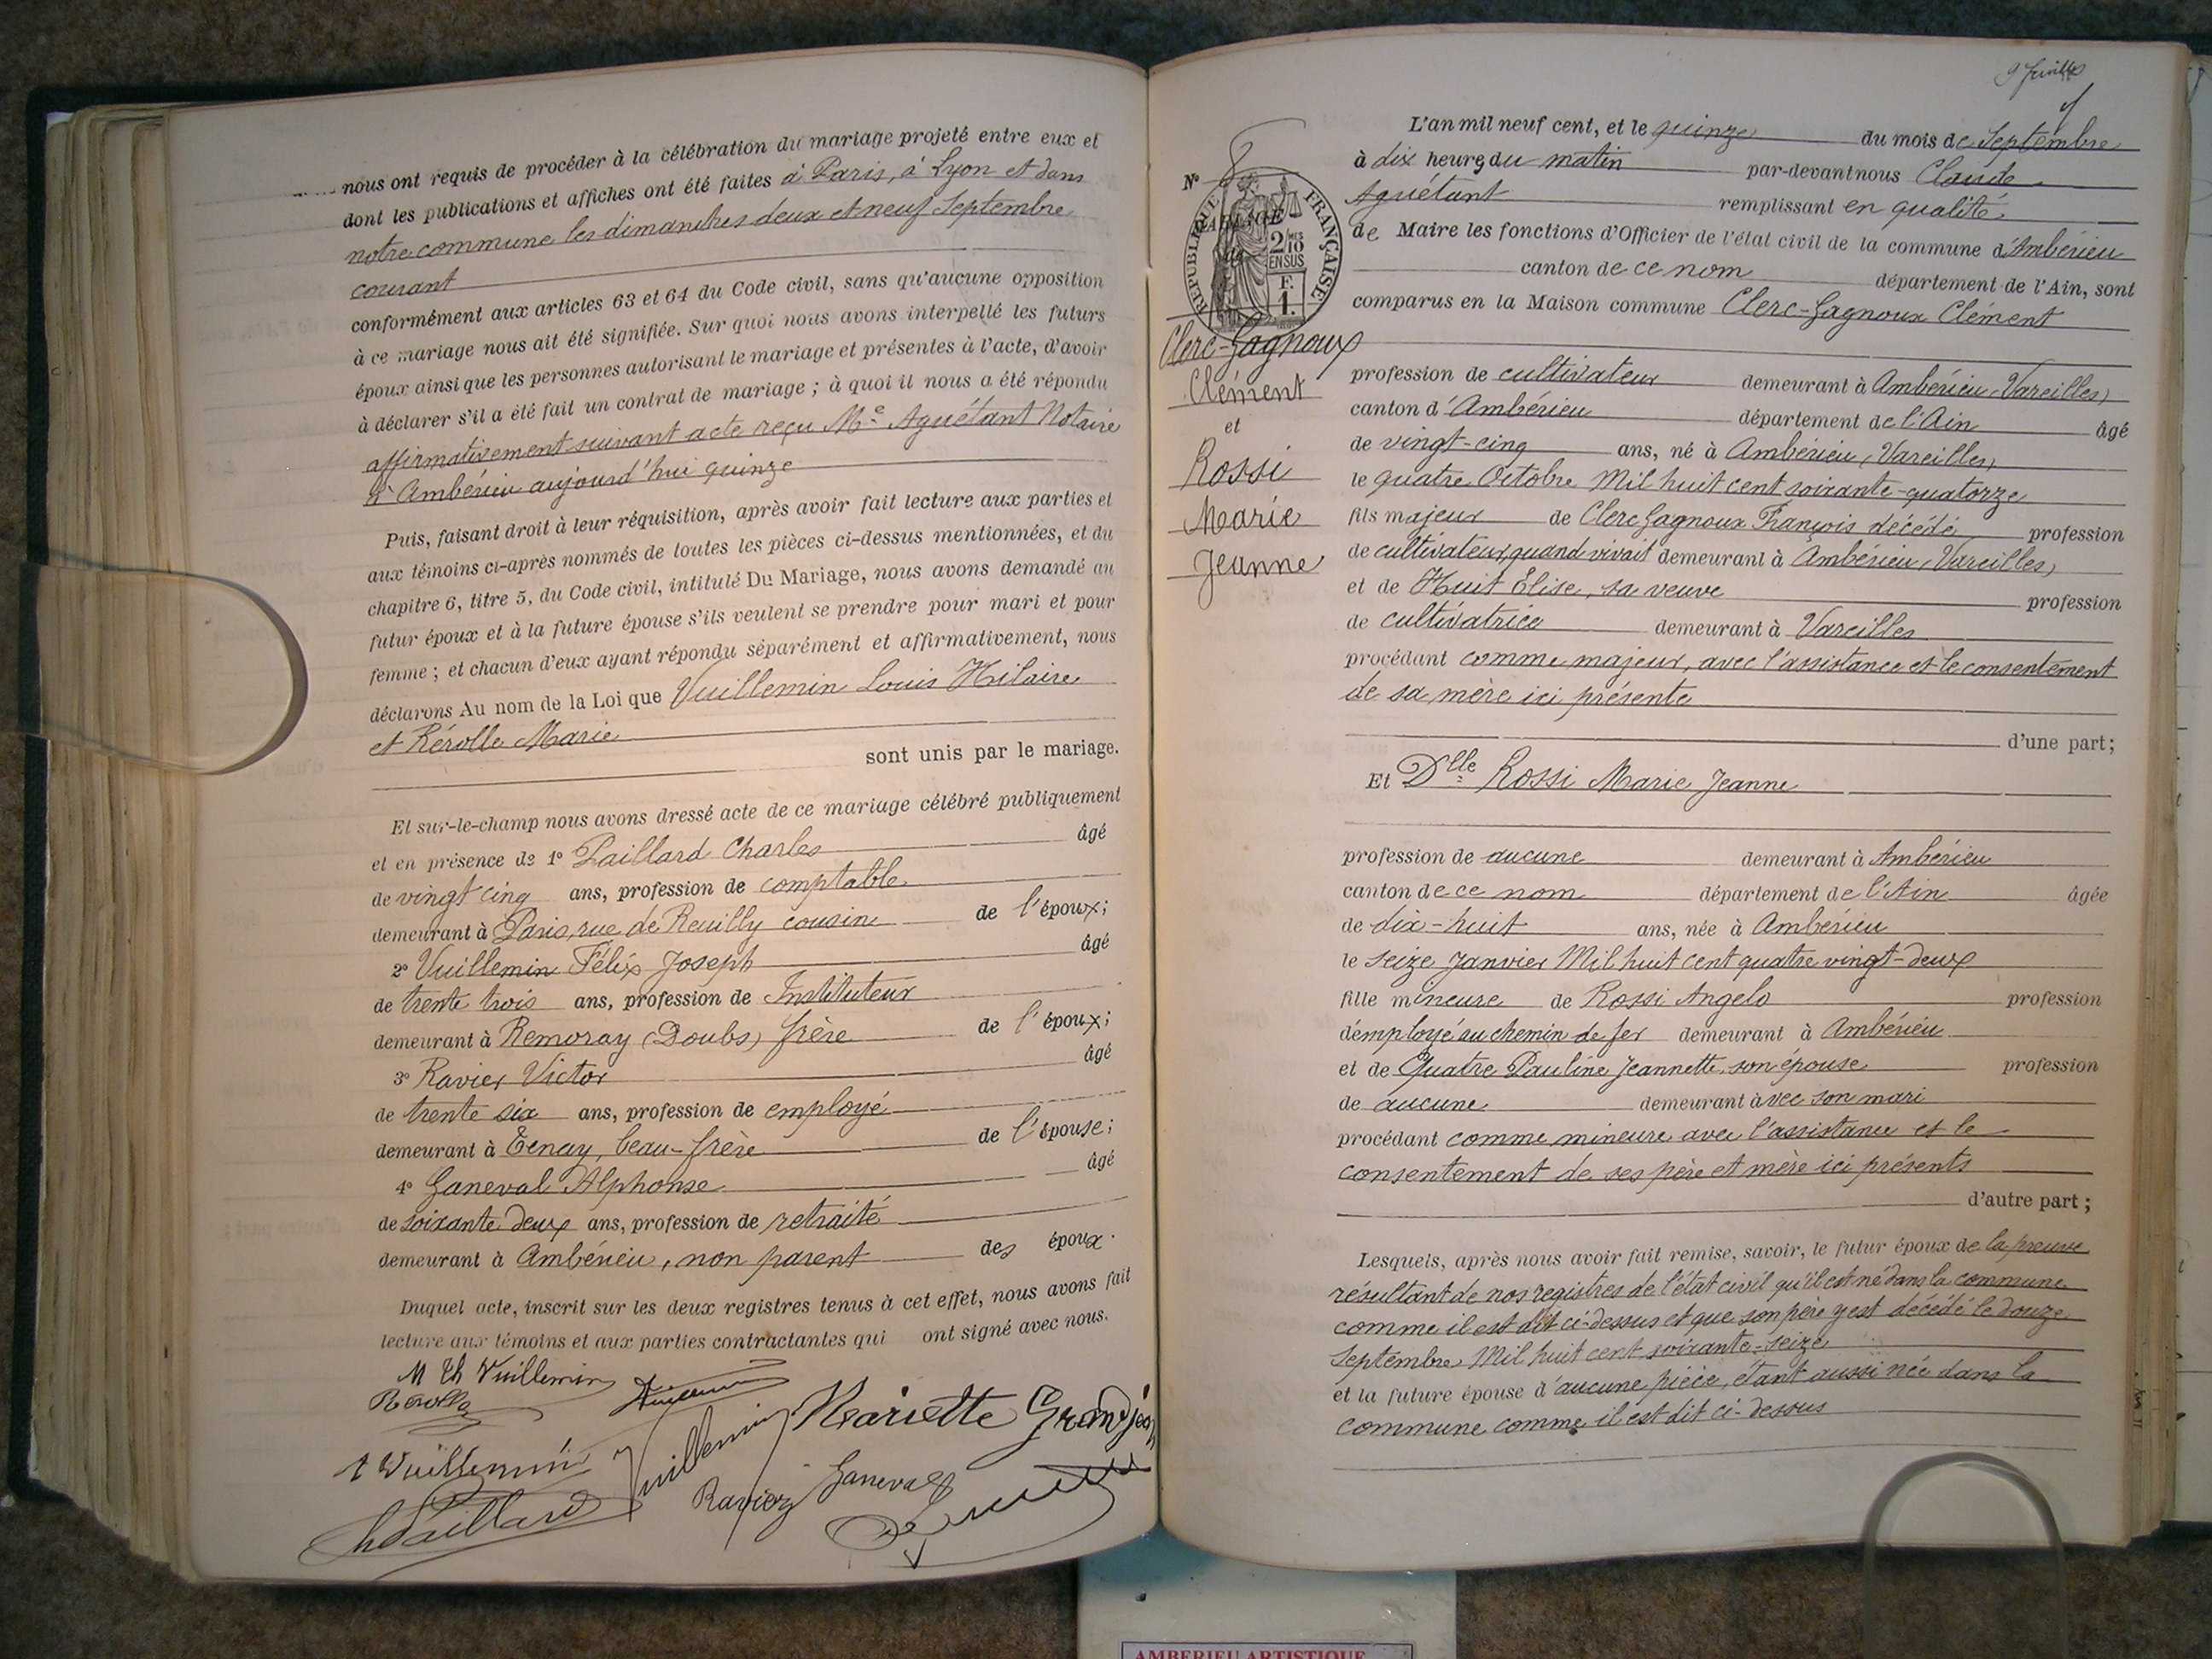 nous ont requis de procéder à la célébration du mariage projeté entre eux et
dont les publications et affiches ont été faites à Paris, à Lyon et dans
notre commune les dimanches deux et neuf Septembre
courant
conformément aux articles 63 et 64 du Code civil, sans qu'aucune opposition
à ce mariage nous ait été signifiée. Sur quoi nous avons interpellé les futurs
époux ainsi que les personnes autorisant le mariage et présentes à l'acte, d'avoir
à déclarer s'il a été fait un contrat de mariage ; à quoi il nous a été répondu
affirmativement suivant acte reçu Me Aguétant Notaire
à Ambérieu aujourd'hui quinze
Puis, faisant droit à leur réquisition, après avoir fait lecture aux parties et
aux témoins ci-après nommés de toutes les pièces ci-dessus mentionnées, et du
chapitre 6, titre 5, du Code civil, intitulé Du Mariage, nous avons demandé au
futur époux et à la future épouse s'ils veulent se prendre pour mari et pour
femme ; et chacun d'eux ayant répondu séparément et affirmativement, nous
déclarons Au nom de la Loi que Vuillemin Louis Hilaire
et Rérolle Marie
sont unis par le mariage.
Et sur-le-champ nous avons dressé acte de ce mariage célébré publiquement
et en présence de 1° Paillard Charles âgé
de vingt cinq ans, profession de comptable
demeurant à Paris, rue de Reuilly cousin de l'époux;
2° Vuillemin Félix Joseph âgé
de trente trois ans, profession de Instituteur
demeurant à Remoray (Doubs) frère de l'époux;
3° Ravier Victor âgé
de trente six ans, profession de employé
demeurant à Tenay, beau-frère de l'épouse;
4° Ganeval Alphonse âgé
de soixante deux ans, profession de retraité
demeurant à Ambérieu, non parent des époux.
Duquel acte, inscrit sur les deux registres tenus à cet effet, nous avons fait
lecture aux témoins et aux parties contractantes qui ont signé avec nous.
M Th Vuillemin
Rérolle
Vuillemin
Mariette Grandjean
Vuillemin
Ravier
Ganeval
Ch Paillard
L'an mil neuf cent, et le quinze du mois de Septembre
à dix heures du matin par-devant nous Claude
Aguétant remplissant en qualité
de Maire les fonctions d'Officier de l'état civil de la commune d'Ambérieu
canton de ce nom département de l'Ain, sont
comparus en la Maison commune Clerc-Gagnoux Clément
N° 8
RÉPUBLIQUE FRANÇAISE
2/10 EN SUS
F. 1.
Clerc-Gagnoux
Clément
et
Rossi
Marie
Jeanne
profession de cultivateur demeurant à Ambérieu (Vareilles)
canton d'Ambérieu département de l'Ain âgé
de vingt-cinq ans, né à Ambérieu (Vareilles)
le quatre Octobre Mil huit cent soixante-quatorze
fils majeur de Clerc Gagnoux François décédé profession
de cultivateur quand vivait demeurant à Ambérieu (Vareilles)
et de Huit Elise, sa veuve profession
de cultivatrice demeurant à Vareilles
procédant comme majeur, avec l'assistance et le consentement
de sa mère ici présente
d'une part;
Et Dlle Rossi Marie Jeanne
profession de aucune demeurant à Ambérieu
canton de ce nom département de l'Ain âgée
de dix-huit ans, née à Ambérieu
le seize Janvier Mil huit cent quatre vingt-deux
fille mineure de Rossi Angelo profession
d'employé au chemin de fer demeurant à Ambérieu
et de Quatre Pauline Jeannette, son épouse profession
de aucune demeurant avec son mari
procédant comme mineure avec l'assistance et le
consentement de ses père et mère ici présents
d'autre part ;
Lesquels, après nous avoir fait remise, savoir, le futur époux de la preuve
résultant de nos registres de l'état civil qu'il est né dans la commune
comme il est dit ci-dessus et que son père y est décédé le douze
Septembre Mil huit cent soixante-seize
et la future épouse d'aucune pièce, étant aussi née dans la
commune comme il est dit ci-dessus
AMBERIEU ARTISTIQUE